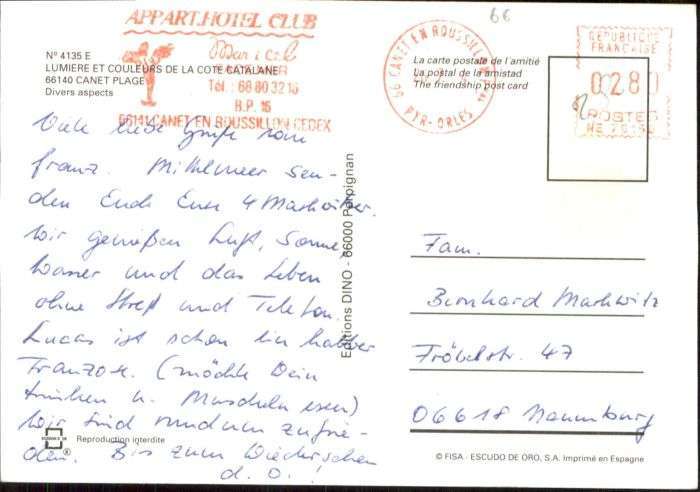 66
APPART.HOTEL CLUB
Mar i Cel
Tél : 68 80 32 16
B.P. 15
66141 CANET EN ROUSSILLON CEDEX
Nº 4135 E
LUMIERE ET COULEURS DE LA COTE CATALANE
66140 CANET PLAGE
Divers aspects
La carte postale de l'amitié
La postal de la amistad
The friendship post card
66 CANET EN ROUSSILLON
PYR-ORLES
REPUBLIQUE
FRANCAISE
0280
POSTES
Viele liebe Grüße vom
franz. Mittelmeer sen-
den Euch Eure 4 Markwitzer.
Wir genießen Luft, Sonne,
Wasser und das Leben
ohne Streß und Telefon.
Lucas ist schon ein halber
Franzose. (möchte Wein
trinken u. Muscheln essen)
Wir sind rundum zufrie-
den. Bis zum Wiedersehen
d. O.
Editions DINO - 66000 Perpignan
Fam.
Bernhard Markwitz
Fröbelstr. 47
06618 Naumburg
Reproduction interdite
© FISA - ESCUDO DE ORO, S.A. Imprimé en Espagne